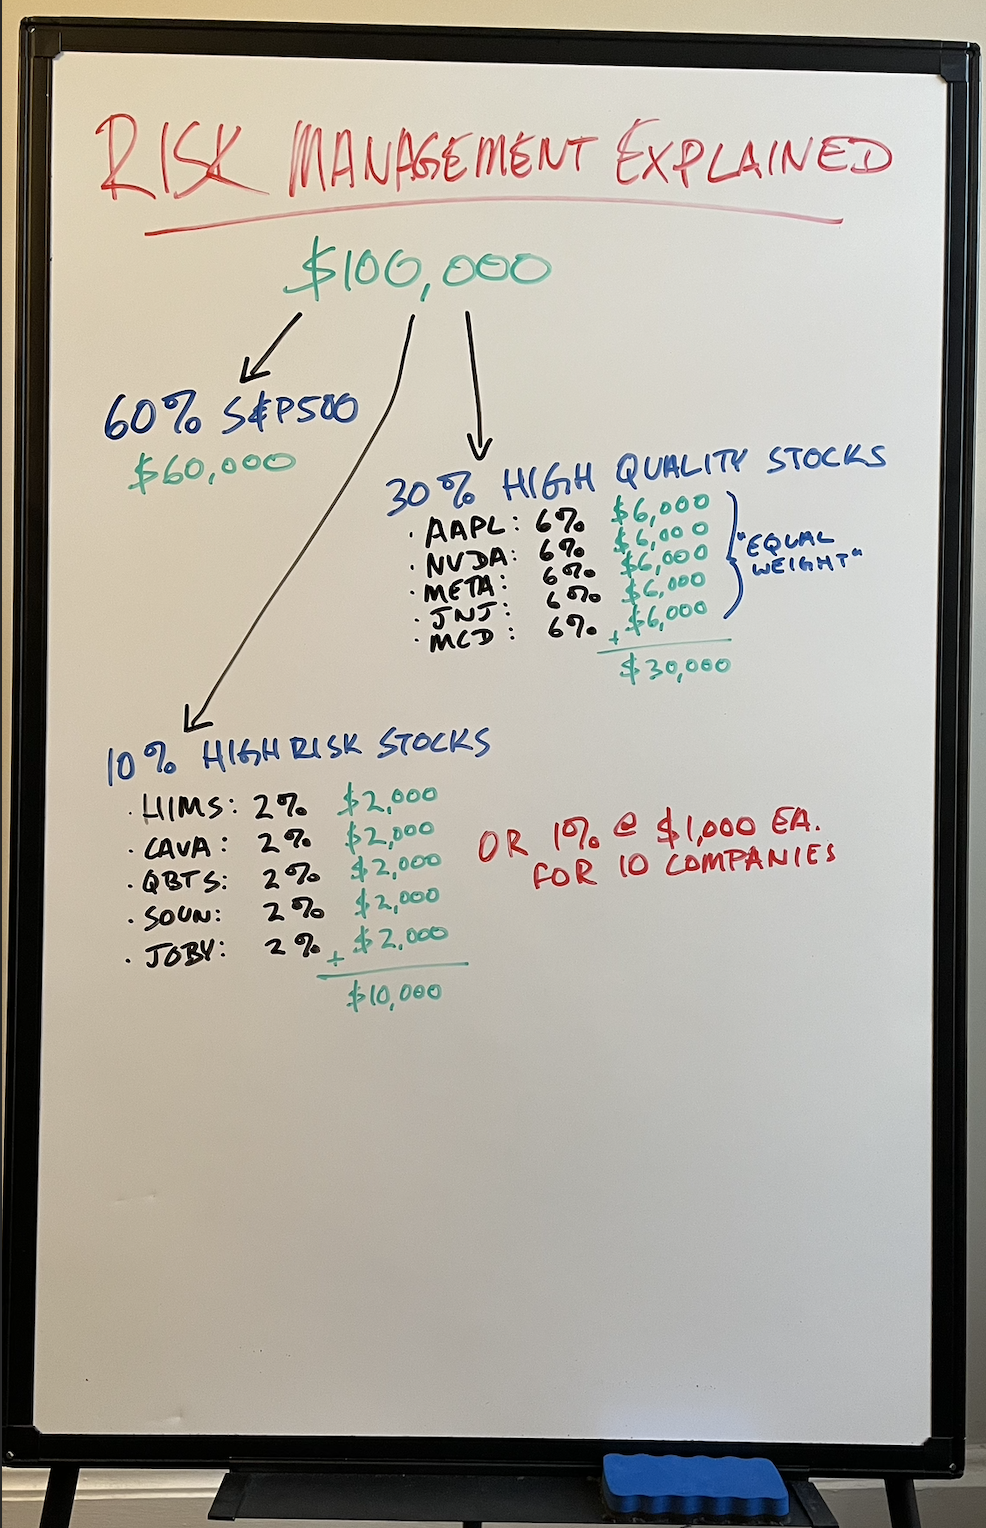 RISK MANAGEMENT EXPLAINED
$100,000
60% S&P500
$60,000
30% HIGH QUALITY STOCKS
· AAPL: 6% $6,000
· NVDA: 6% $6,000
· META: 6% $6,000
· JNJ: 6% $6,000
· MCD: 6% + $6,000
$30,000
"EQUAL
WEIGHT"
10% HIGH RISK STOCKS
· HIMS: 2% $2,000
· CAVA: 2% $2,000
· QBTS: 2% $2,000
· SOUN: 2% $2,000
· JOBY: 2% + $2,000
$10,000
OR 1% @ $1,000 EA.
FOR 10 COMPANIES